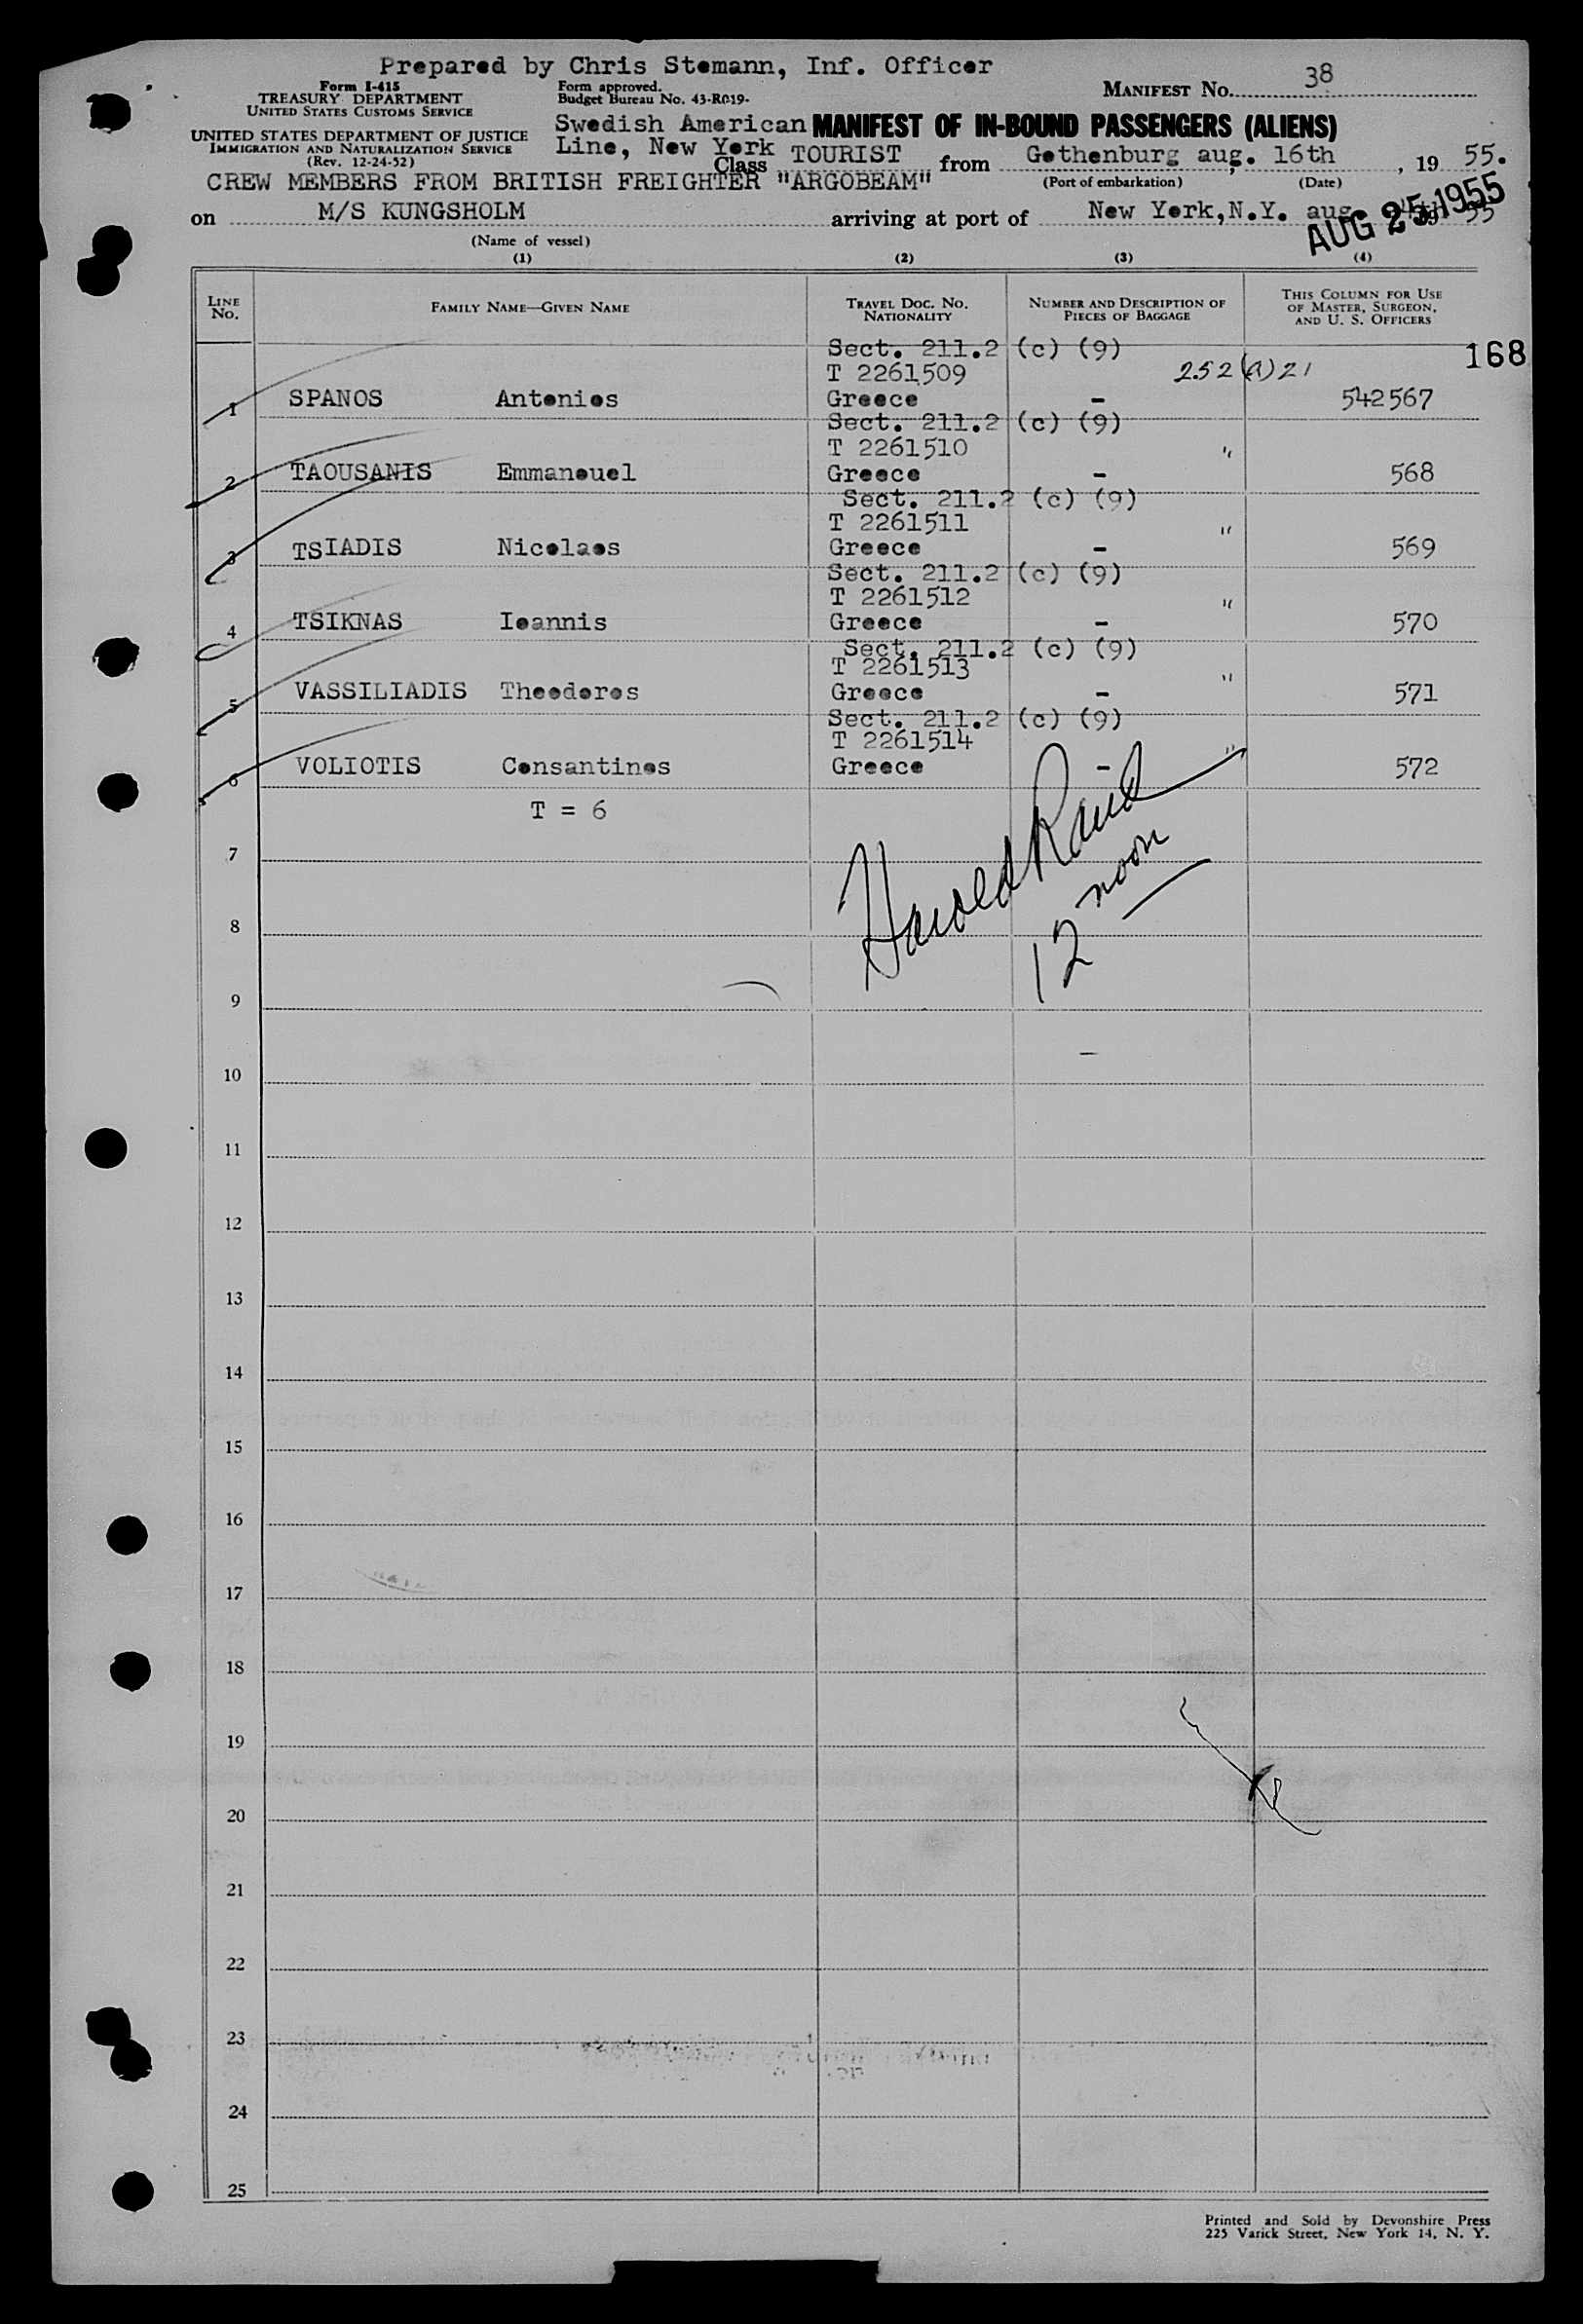 Prepared by Chris Stemann, Inf. Officer
Form I-415
TREASURY DEPARTMENT
UNITED STATES CUSTOMS SERVICE
Form approved.
Budget Bureau No. 43-R019-
MANIFEST No. 38
UNITED STATES DEPARTMENT OF JUSTICE
IMMIGRATION AND NATURALIZATION SERVICE
(Rev. 12-24-52)
Swedish American MANIFEST OF IN-BOUND PASSENGERS (ALIENS)
Line, New York
Class TOURIST from Gothenburg aug. 16th, 19 55.
(Port of embarkation) (Date)
CREW MEMBERS FROM BRITISH FREIGHTER "ARGOBEAM"
on M/S KUNGSHOLM arriving at port of New York,N.Y. aug 19 55
AUG 25 1955
(Name of vessel)
(1) (2) (3) (4)
LINE No. FAMILY NAME—GIVEN NAME TRAVEL DOC. No. NATIONALITY NUMBER AND DESCRIPTION OF PIECES OF BAGGAGE THIS COLUMN FOR USE OF MASTER, SURGEON, AND U. S. OFFICERS
168
Sect. 211.2 (c) (9)
T 2261509 252(a)21
1 SPANOS Antonios Greece - 542567
Sect. 211.2 (c) (9)
T 2261510 "
2 TAOUSANIS Emmanouel Greece - 568
Sect. 211.2 (c) (9)
T 2261511 "
3 TSIADIS Nicolaos Greece - 569
Sect. 211.2 (c) (9)
T 2261512 "
4 TSIKNAS Ioannis Greece - 570
Sect. 211.2 (c) (9)
T 2261513 "
5 VASSILIADIS Theodoros Greece - 571
Sect. 211.2 (c) (9)
T 2261514 "
6 VOLIOTIS Consantinos Greece - 572
T = 6
Harold Rand
12 noon
7
8
9
10
11
12
13
14
15
16
17
18
19
20
21
22
23
24
25
Printed and Sold by Devonshire Press
225 Varick Street, New York 14, N. Y.